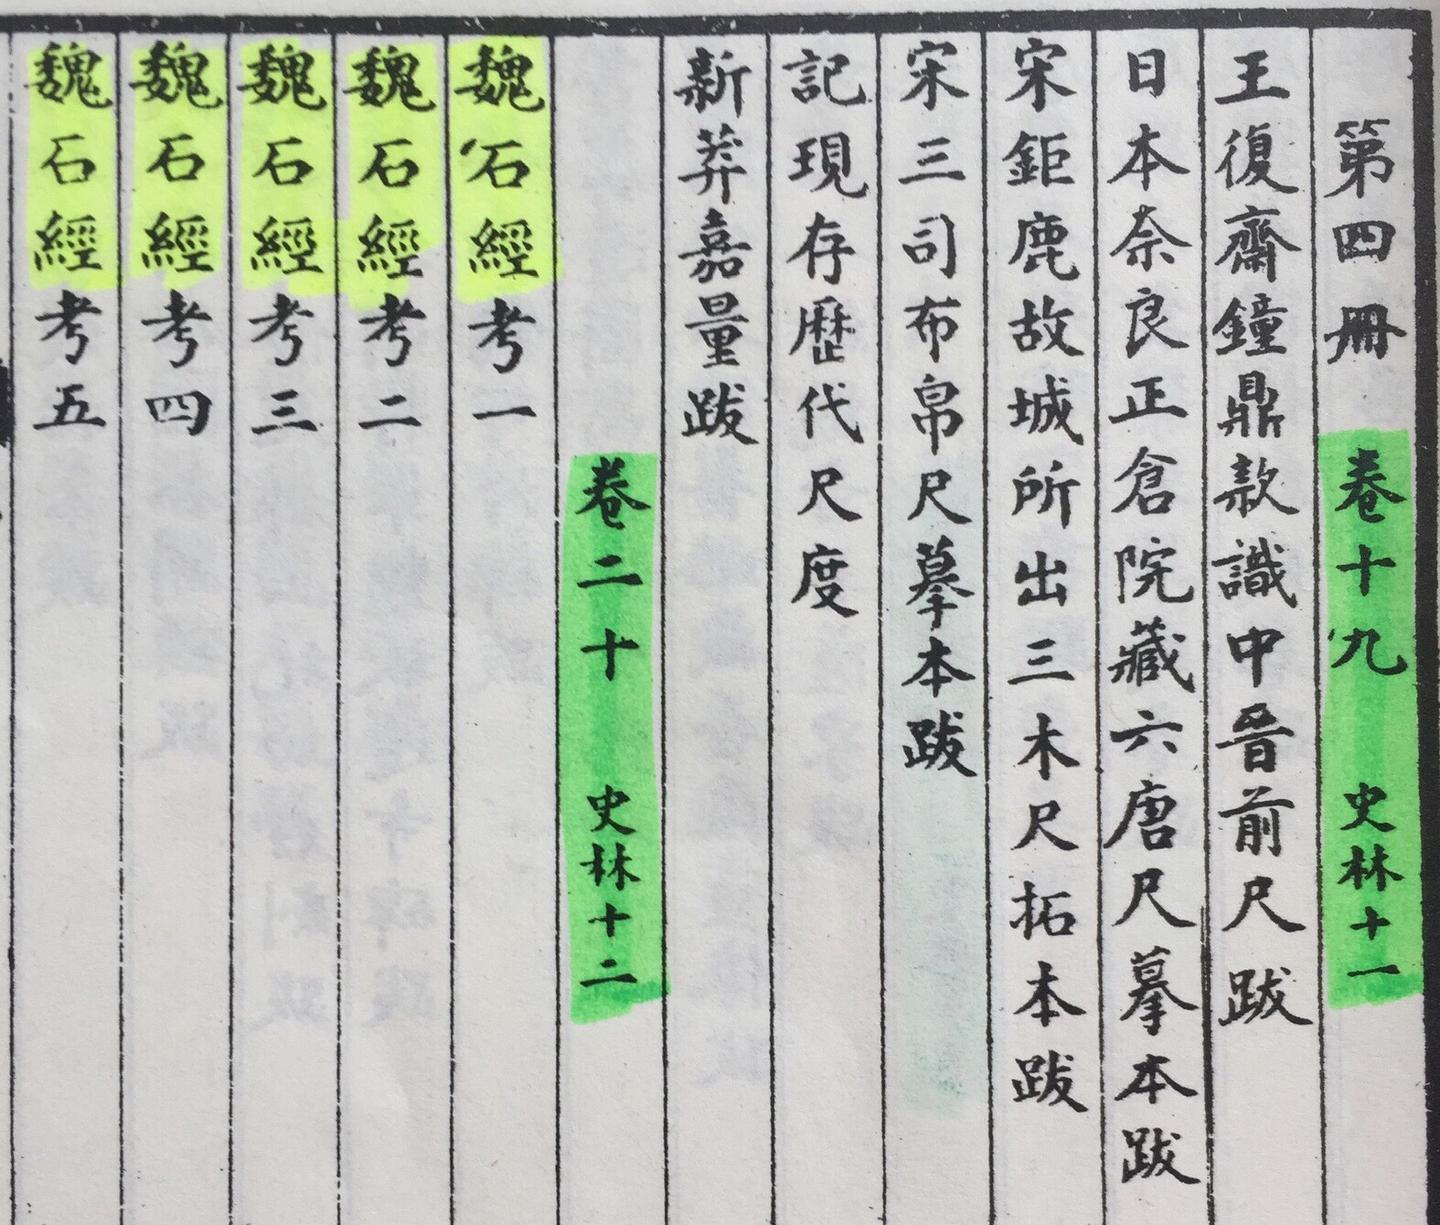 第四冊 卷十九 史林十一
王復齋鐘鼎款識中晉前尺跋
日本奈良正倉院藏六唐尺摹本跋
宋鉅鹿故城所出三木尺拓本跋
宋三司布帛尺摹本跋
記現存歷代尺度
新莽嘉量跋
卷二十 史林十二
魏石經考一
魏石經考二
魏石經考三
魏石經考四
魏石經考五